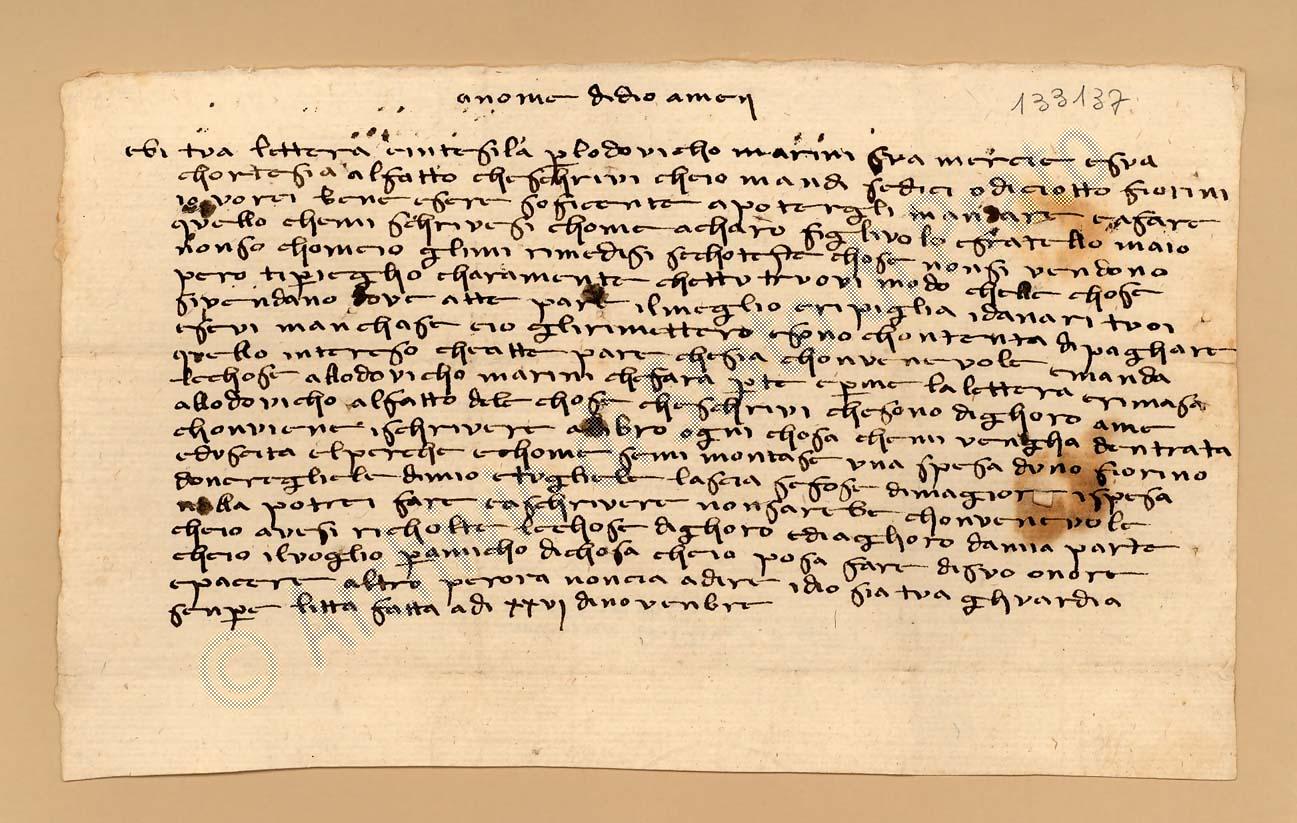 a nome di dio amen
133137
ebi tua lettera e intesi la p lodovicho marini sua mercie e sua
chortesia al fatto che schrivi che io mandi sedici o diciotto fiorini
io vorei bene esere soficente a potergli mandare e a fare
quello che mi schrivesi chome a charo figlivolo e fratello maio
non so chom e io gli mi rimedisi se choteste chose non si vendono
pero ti priegho charamente che ttu truovi modo che lle chose
si vendano dove a tte pare il meglio e ripiglia i danari tuoi
e se vi manchase e io gli rimettero e sono chontenta di paghare
quello intereso che a tte pare che sia chonvenevole e manda
le chose a llodovicho marini che fara p te e p me la lettera e rimasa
a llodovicho al fatto dele chose che schrivi che sono di ghoro a me
chonviene ischrivere a libro ogni chosa che mi vengha d entrata
ed uscita el perche e chome se mi montase una spesa d uno fiorino
doneregliele di mio e tugliele lascia se fose di magiore ispesa
nolla potrei fare e a schrivere non sarebe chonvenevole
che io avesi richolte le chose di ghoro e di a ghoro da mia parte
che io il voglio p amicho di chosa che io posa fare di suo onore
e pacere altro per ora non c ia a dire idio sia tua ghuardia
senpre litta fatta a di xxvi di novenbre